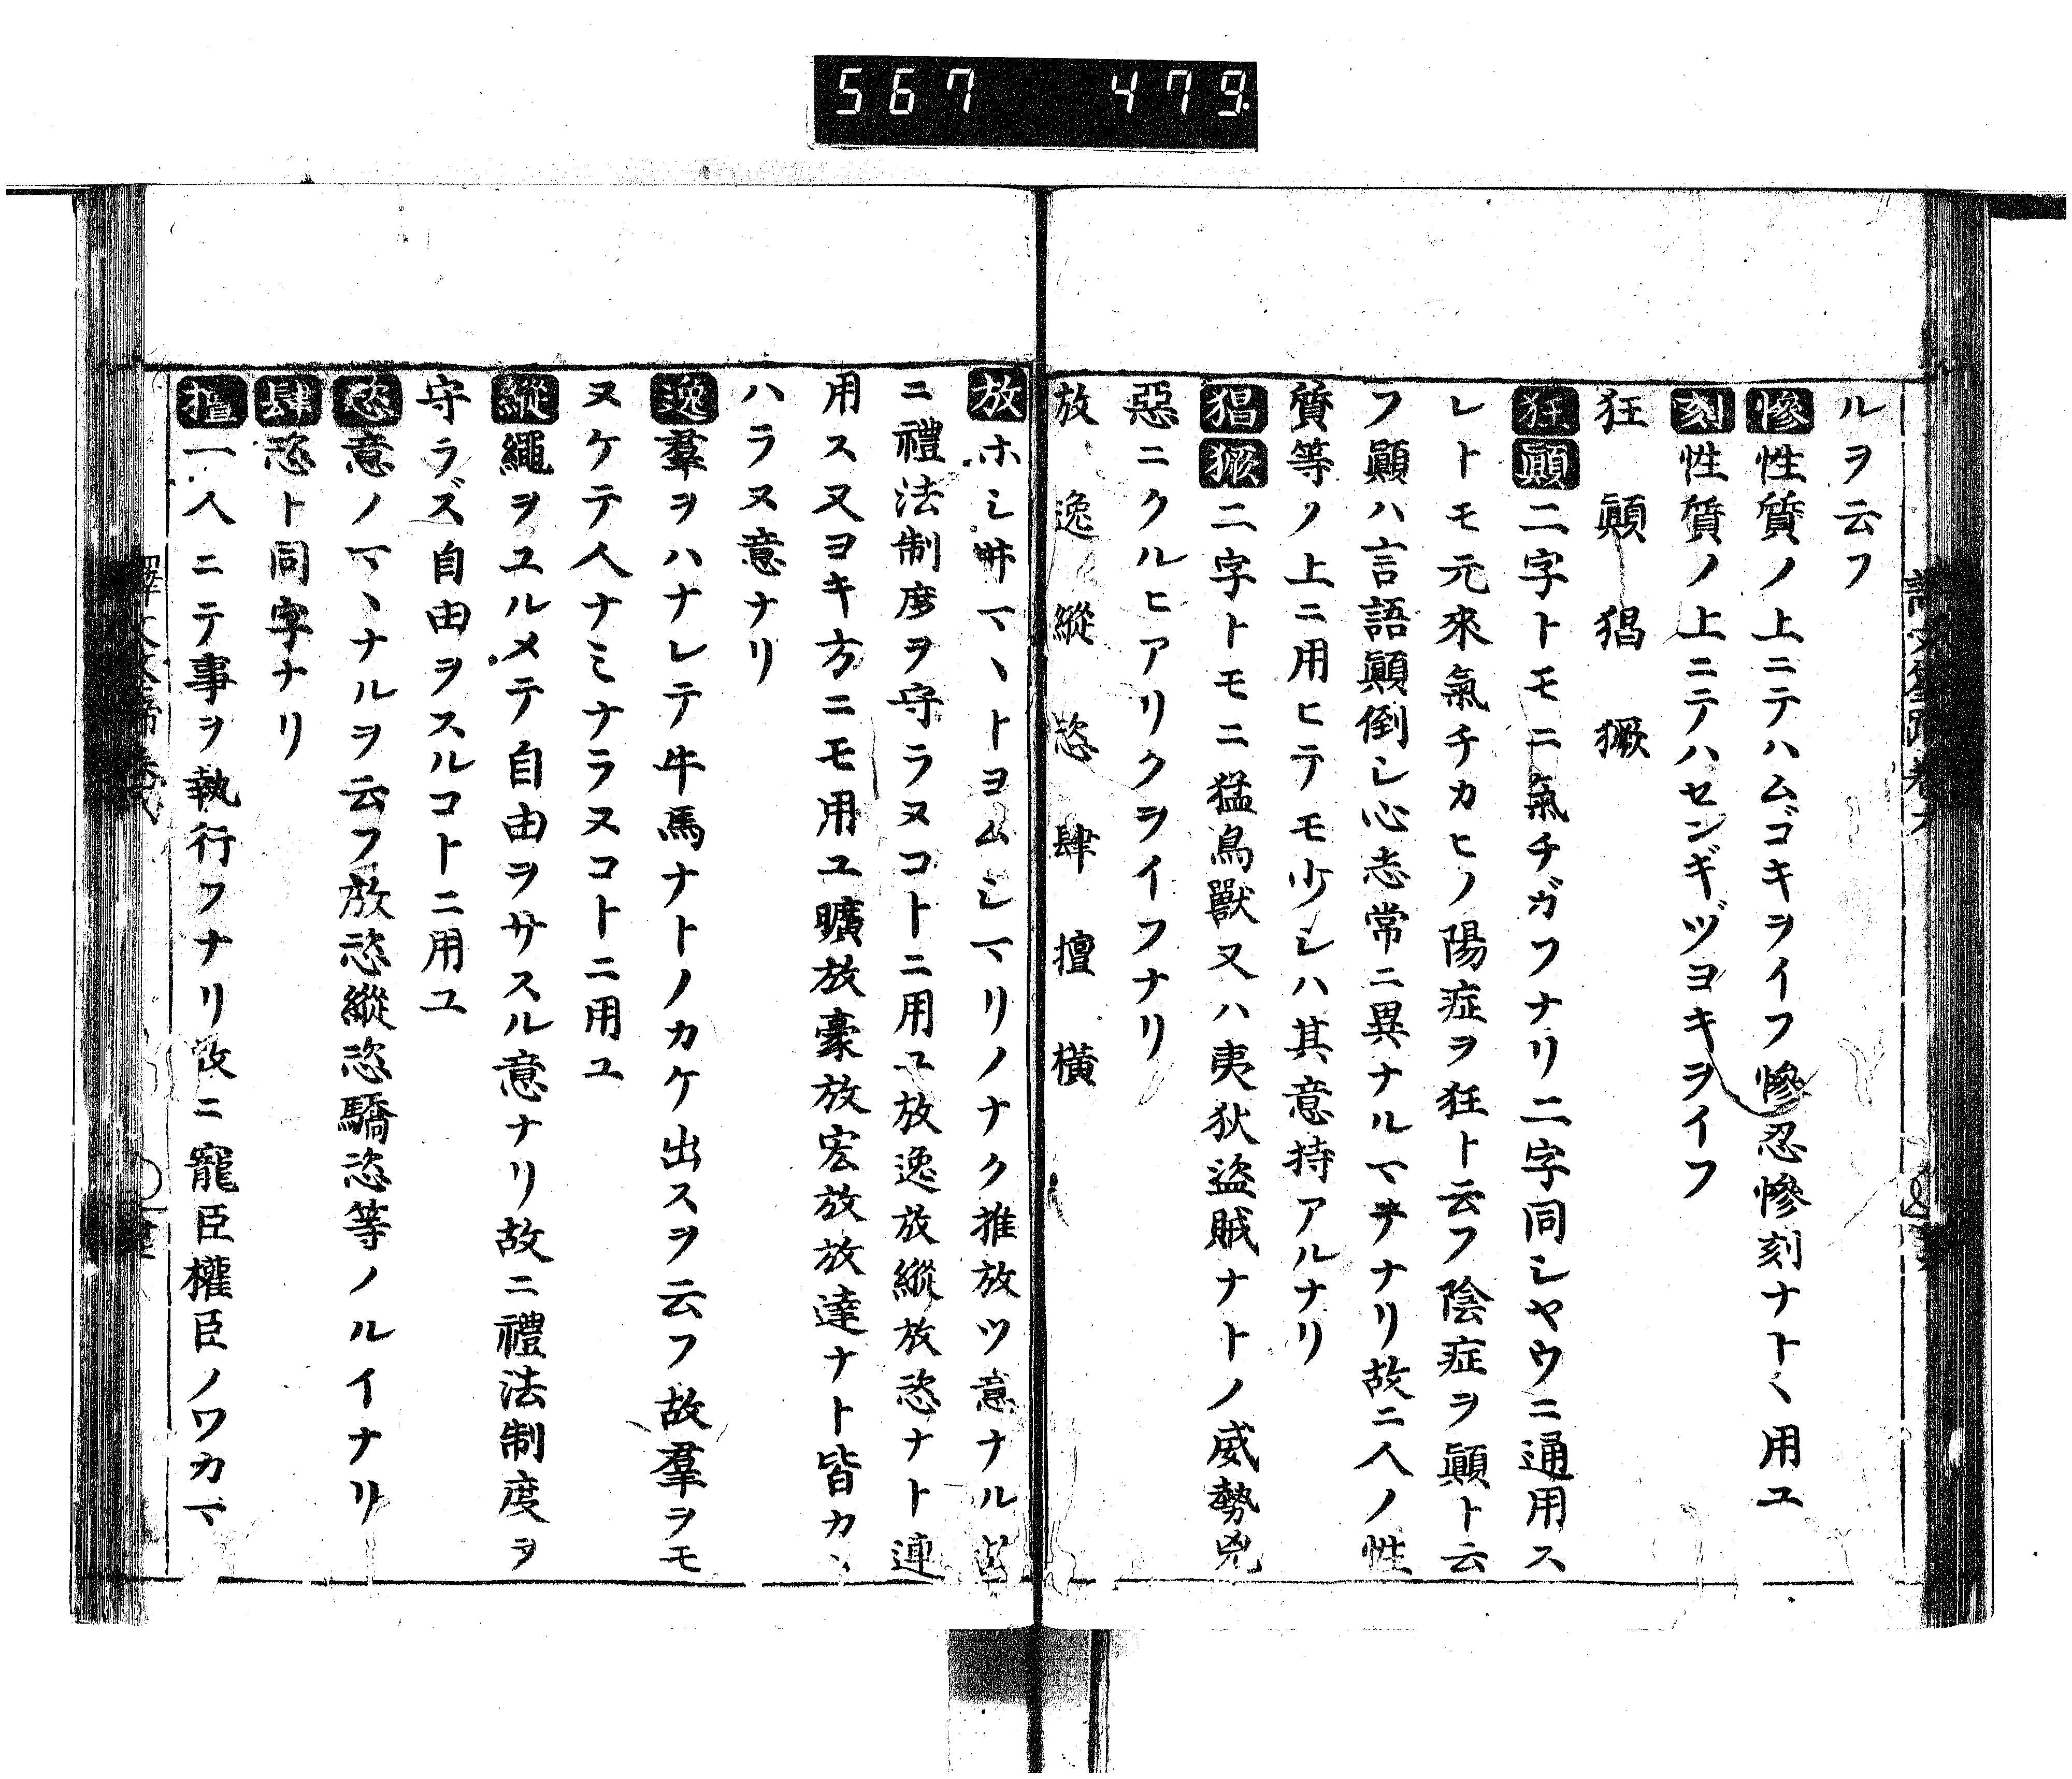 567 479
ルヲ云フ
慘性質ノ上ニテハムゴキヲイフ慘忍慘刻ナト丶用ユ
刻性質ノ上ニテハセンギヅヨキヲイフ
狂 顚 猖 獗
狂顚二字トモニ氣チガフナリ二字同シヤウニ通用ス
レトモ元來氣チカヒノ陽症ヲ狂ト云フ陰症ヲ顚ト云
フ顚ハ言語顚倒シ心志常ニ異ナルマテナリ故ニ人ノ性
質等ノ上ニ用ヒテモ少シハ其意持アルナリ
猖獗二字トモニ猛鳥獸又ハ夷狄盜賊ナトノ威勢兇
惡ニクルヒアリクヲイフナリ
放 逸 縱 恣 肆 擅 橫
放ホシ丗マ丶トヨムシマリノナク推放ツ意ナル
ニ禮法制度ヲ守ラヌコトニ用ユ放逸放縱放恣ナト連
用ス又ヨキ方ニモ用ユ曠放豪放宏放放達ナト皆カ丶
ハラヌ意ナリ
逸羣ヲハナレテ牛馬ナトノカケ出スヲ云フ故羣ヲモ
ヌケテ人ナミナラヌコトニ用ユ
縱繩ヲユルメテ自由ヲサスル意ナリ故ニ禮法制度ヲ
守ラズ自由ヲスルコトニ用ユ
恣意ノマ丶ナルヲ云フ放恣縱恣驕恣等ノルイナリ
肆恣ト同字ナリ
擅一人ニテ事ヲ執行フナリ故ニ寵臣權臣ノワカマ